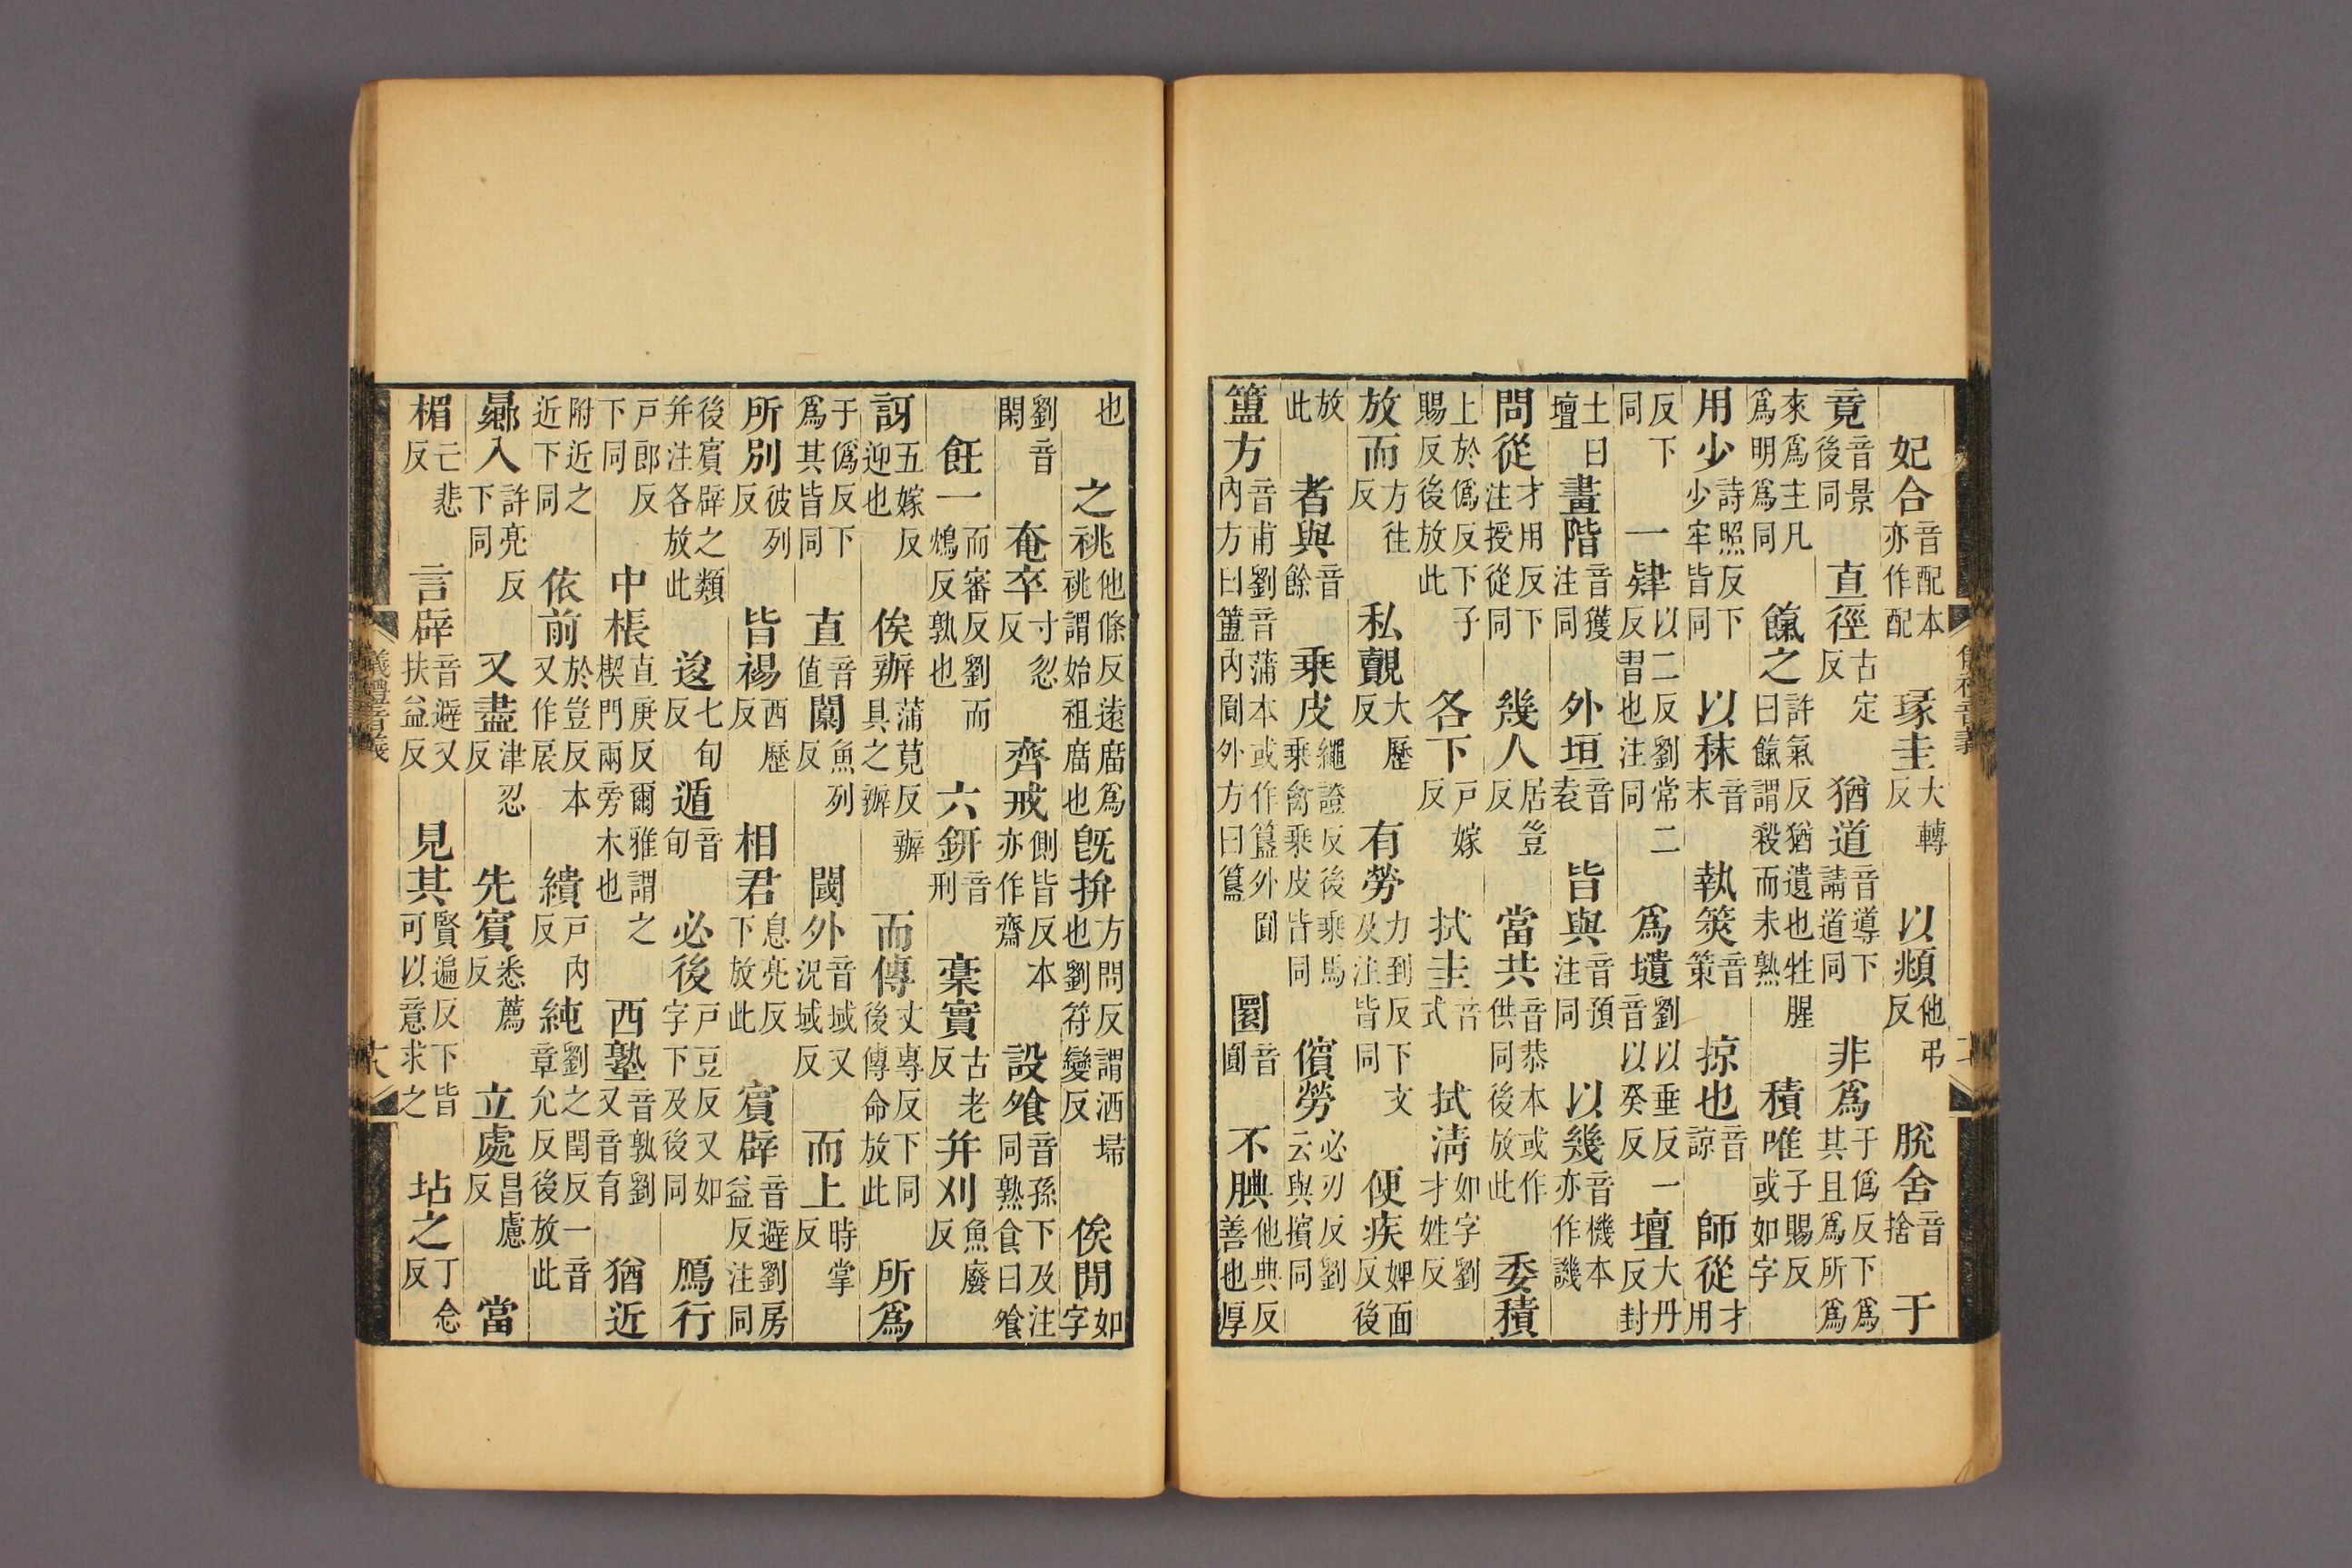 妃合音配本亦作配 瑑圭大轉反 以頫他弔反 脫舍音捨 于
竟音景後同 直徑古定反 猶道音導下請道同 非爲于僞反下爲其且爲所爲
來爲主凡爲明爲同 餼之許氣反猶遺也牲腥曰餼謂殺而未熟 積唯子賜反或如字
用少詩照反下少牢皆同 以秣音末 執筴音策 掠也音諒 師從才用
反下同 一肄以二反劉常二反習也注同 爲壝劉以垂反一音以癸反 壇大丹反封
土曰壇 畫階音獲注同 外垣音袁 皆與音預注同 以幾音機本亦作譏
問從才用反下注授從同 幾人居豈反 當共音恭本或作供同後放此 委積
上於僞反下子賜反後放此 各下戶嫁反 拭圭音式 拭淸如字劉才姓反
放而方往反 私覿大歷反 有勞力到反下文及注皆同 便疾婢面反後
放此 者與音餘 乘皮繩證反後乘馬乘禽乘皮皆同 儐勞必刃反劉云與擯同
簠方音甫劉音蒲本或作簋外圓內方曰簠內圓外方曰簋 圜音圓 不腆他典反善也厚
也 之祧他條反遠廟爲祧謂始祖廟也 旣拚方問反謂洒埽也劉符變反 俟閒如字
劉音閑 奄卒寸忽反 齊戒側皆反本亦作齋 設飧音孫下及注同熟食曰飧
飪一而審反劉而鴆反孰也 六鉶音刑 稾實古老反 并刈魚廢反
訝五嫁反迎也 俟辦蒲莧反辦具之辦 而傳丈專反下同後傳命放此 所爲
于僞反下爲其皆同 直音値 闑魚列反 閾外音域又況域反 而上時掌反
所別彼列反 皆裼西歷反 相君息亮反下放此 賓辟音避劉房益反注同
後賓辟之類并注各放此 逡七旬反 遁音旬 必後戶豆反又如字下及後同 鴈行
戶郎反下同 中棖直庚反爾雅謂之楔門兩旁木也 西塾音孰劉又音育 猶近
附近之近下同 依前於豈反本又作扆 繢戶內反 純劉之閏反一音章允反後放此
曏入許亮反下同 又盡津忍反 先賓悉薦反 立處昌慮反 當
楣亡悲反 言辟音避又扶益反 見其賢遍反下皆可以意求之 坫之丁念反
儀禮音義